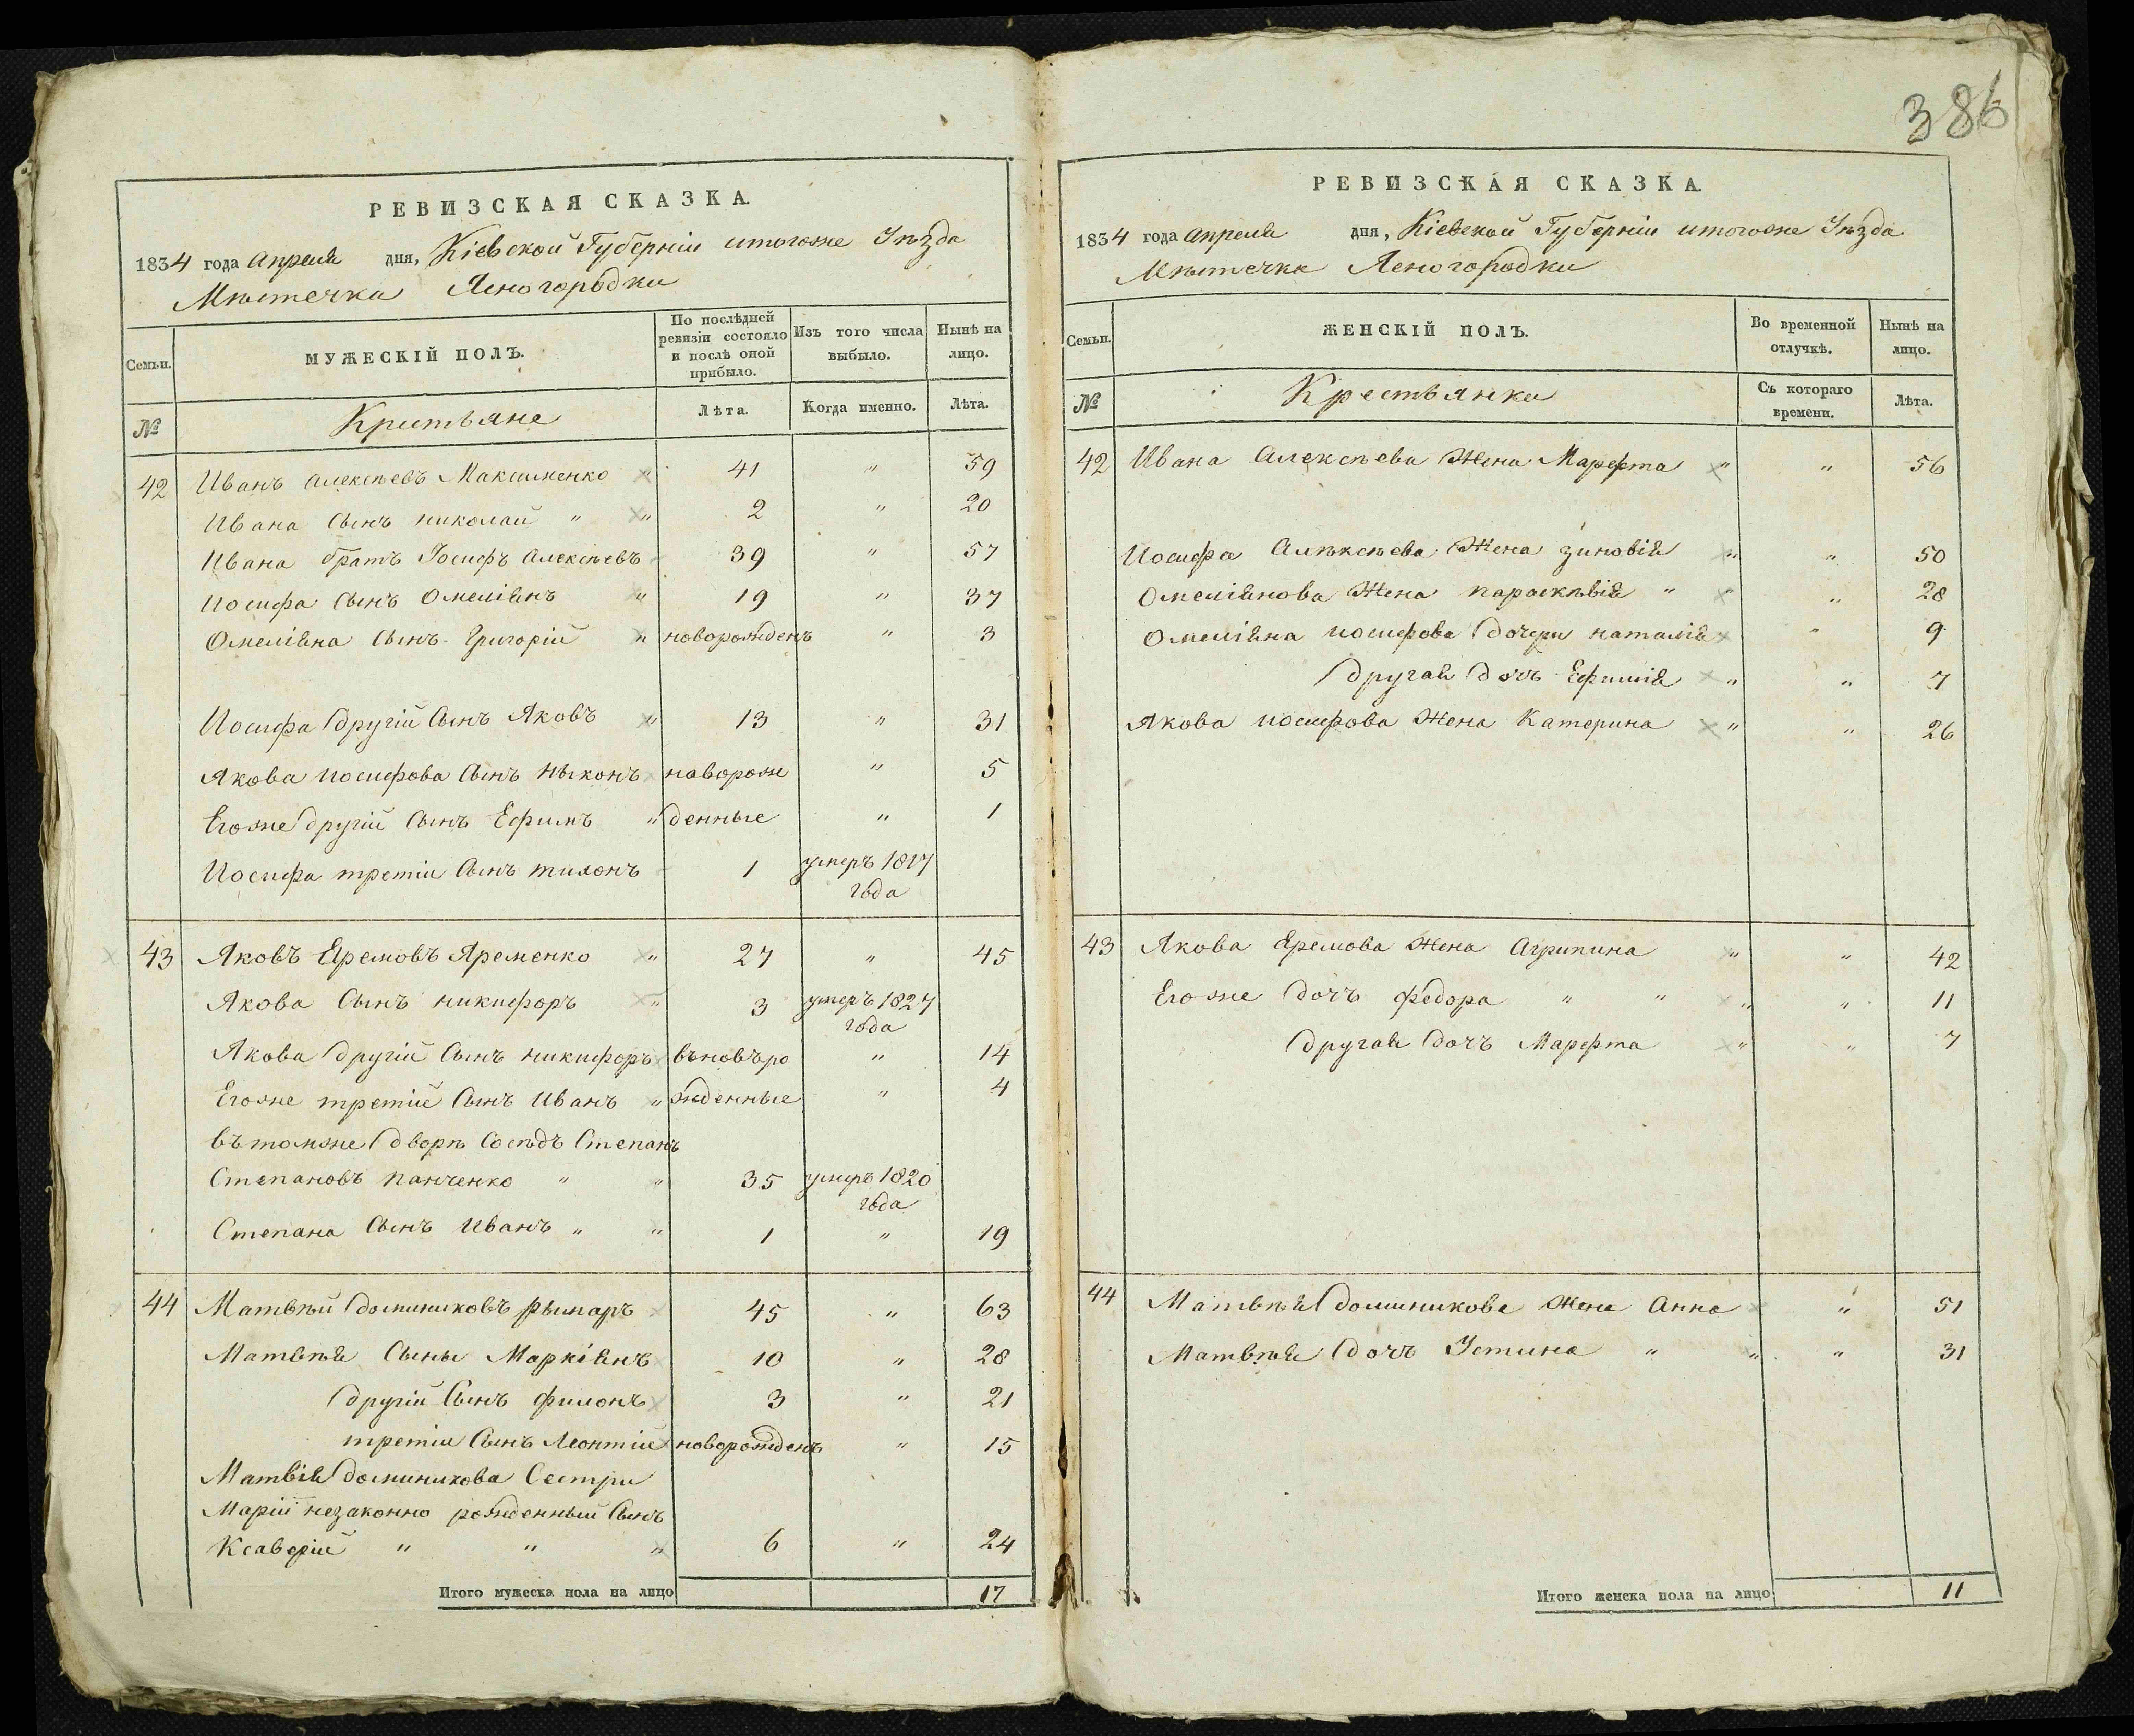 386
РЕВИЗСКАЯ СКАЗКА.
1834 года Апреля дня, Кіевской Губерніи итогоже Уѣзда
Мѣстечка Ясногородки
Семьи. МУЖЕСКІЙ ПОЛЪ. По послѣдней ревизіи состояло и послѣ оной прибыло. Изъ того числа выбыло. Нынѣ на лицо.
№ Кристьяне Лѣта. Когда именно. Лѣта.
42 Иванъ Алексѣевъ Максименко " 41 " 59
Ивана Сынъ николай " " 2 " 20
Ивана братъ Іосифъ Алексѣевъ 39 " 57
Иосифа Сынъ Омеліянъ " 19 " 37
Омеліяна Сынъ Григорій " новорожденъ " 3
Иосифа другій Сынъ Яковъ " 13 " 31
Якова иосифова Сынъ Никонъ новорож " 5
Егоже другій Сынъ Ефимъ " денные " 1
Иосифа третіи Сынъ тихонъ 1 умеръ 1817
года
43 Яковъ Еремовъ Яременко " 27 " 45
Якова Сынъ никифоръ " 3 умеръ 1827
года
Якова другій Сынъ никифоръ вьновьро " 14
Егоже третій Сынъ Иванъ " жденные " 4
вътомже дворѣ Сосѣдъ Степанъ
Степановъ панченко " " 35 умеръ 1820
года
Степана Сынъ Иванъ " " 1 " 19
44 Матвѣй доминиковъ рымаръ 45 " 63
Матвѣя Сыны Маркіянъ 10 " 28
другій Сынъ филонъ 3 " 21
третіи Сынъ Леонтій новорожденъ " 15
Матвія доминикова Сестри
Маріи незаконно рожденный Сынъ
Ксаверій " " " 6 " 24
Итого мужеска пола на лицо 17
РЕВИЗСКАЯ СКАЗКА.
1834 года Апреля дня, Кіевской Губерніи итогоже Уѣзда
Мѣстечка Ясногородки
Семьи. ЖЕНСКІЙ ПОЛЪ. Во временной отлучкѣ. Нынѣ на лицо.
№ Крестьянки Съ котораго времени. Лѣта.
42 Ивана Алексѣева Жена Марефта " " 56
Иосифа Алѣксѣева Жена зиновія " " 50
Омеліянова Жена параскѣвія " " " 28
Омеліяна иосифова дочери наталія " 9
другая дочъ Ефимія " " 7
Якова иосифова Жена Катерина " " 26
43 Якова Еремова Жена Агрипина " " 42
Егоже дочъ федора " " " " 11
другая дочъ Марефта " " 7
44 Матвѣя доминикова Жена Анна " 51
Матвѣя дочъ Устина " " " 31
Итого женска пола на лицо 11